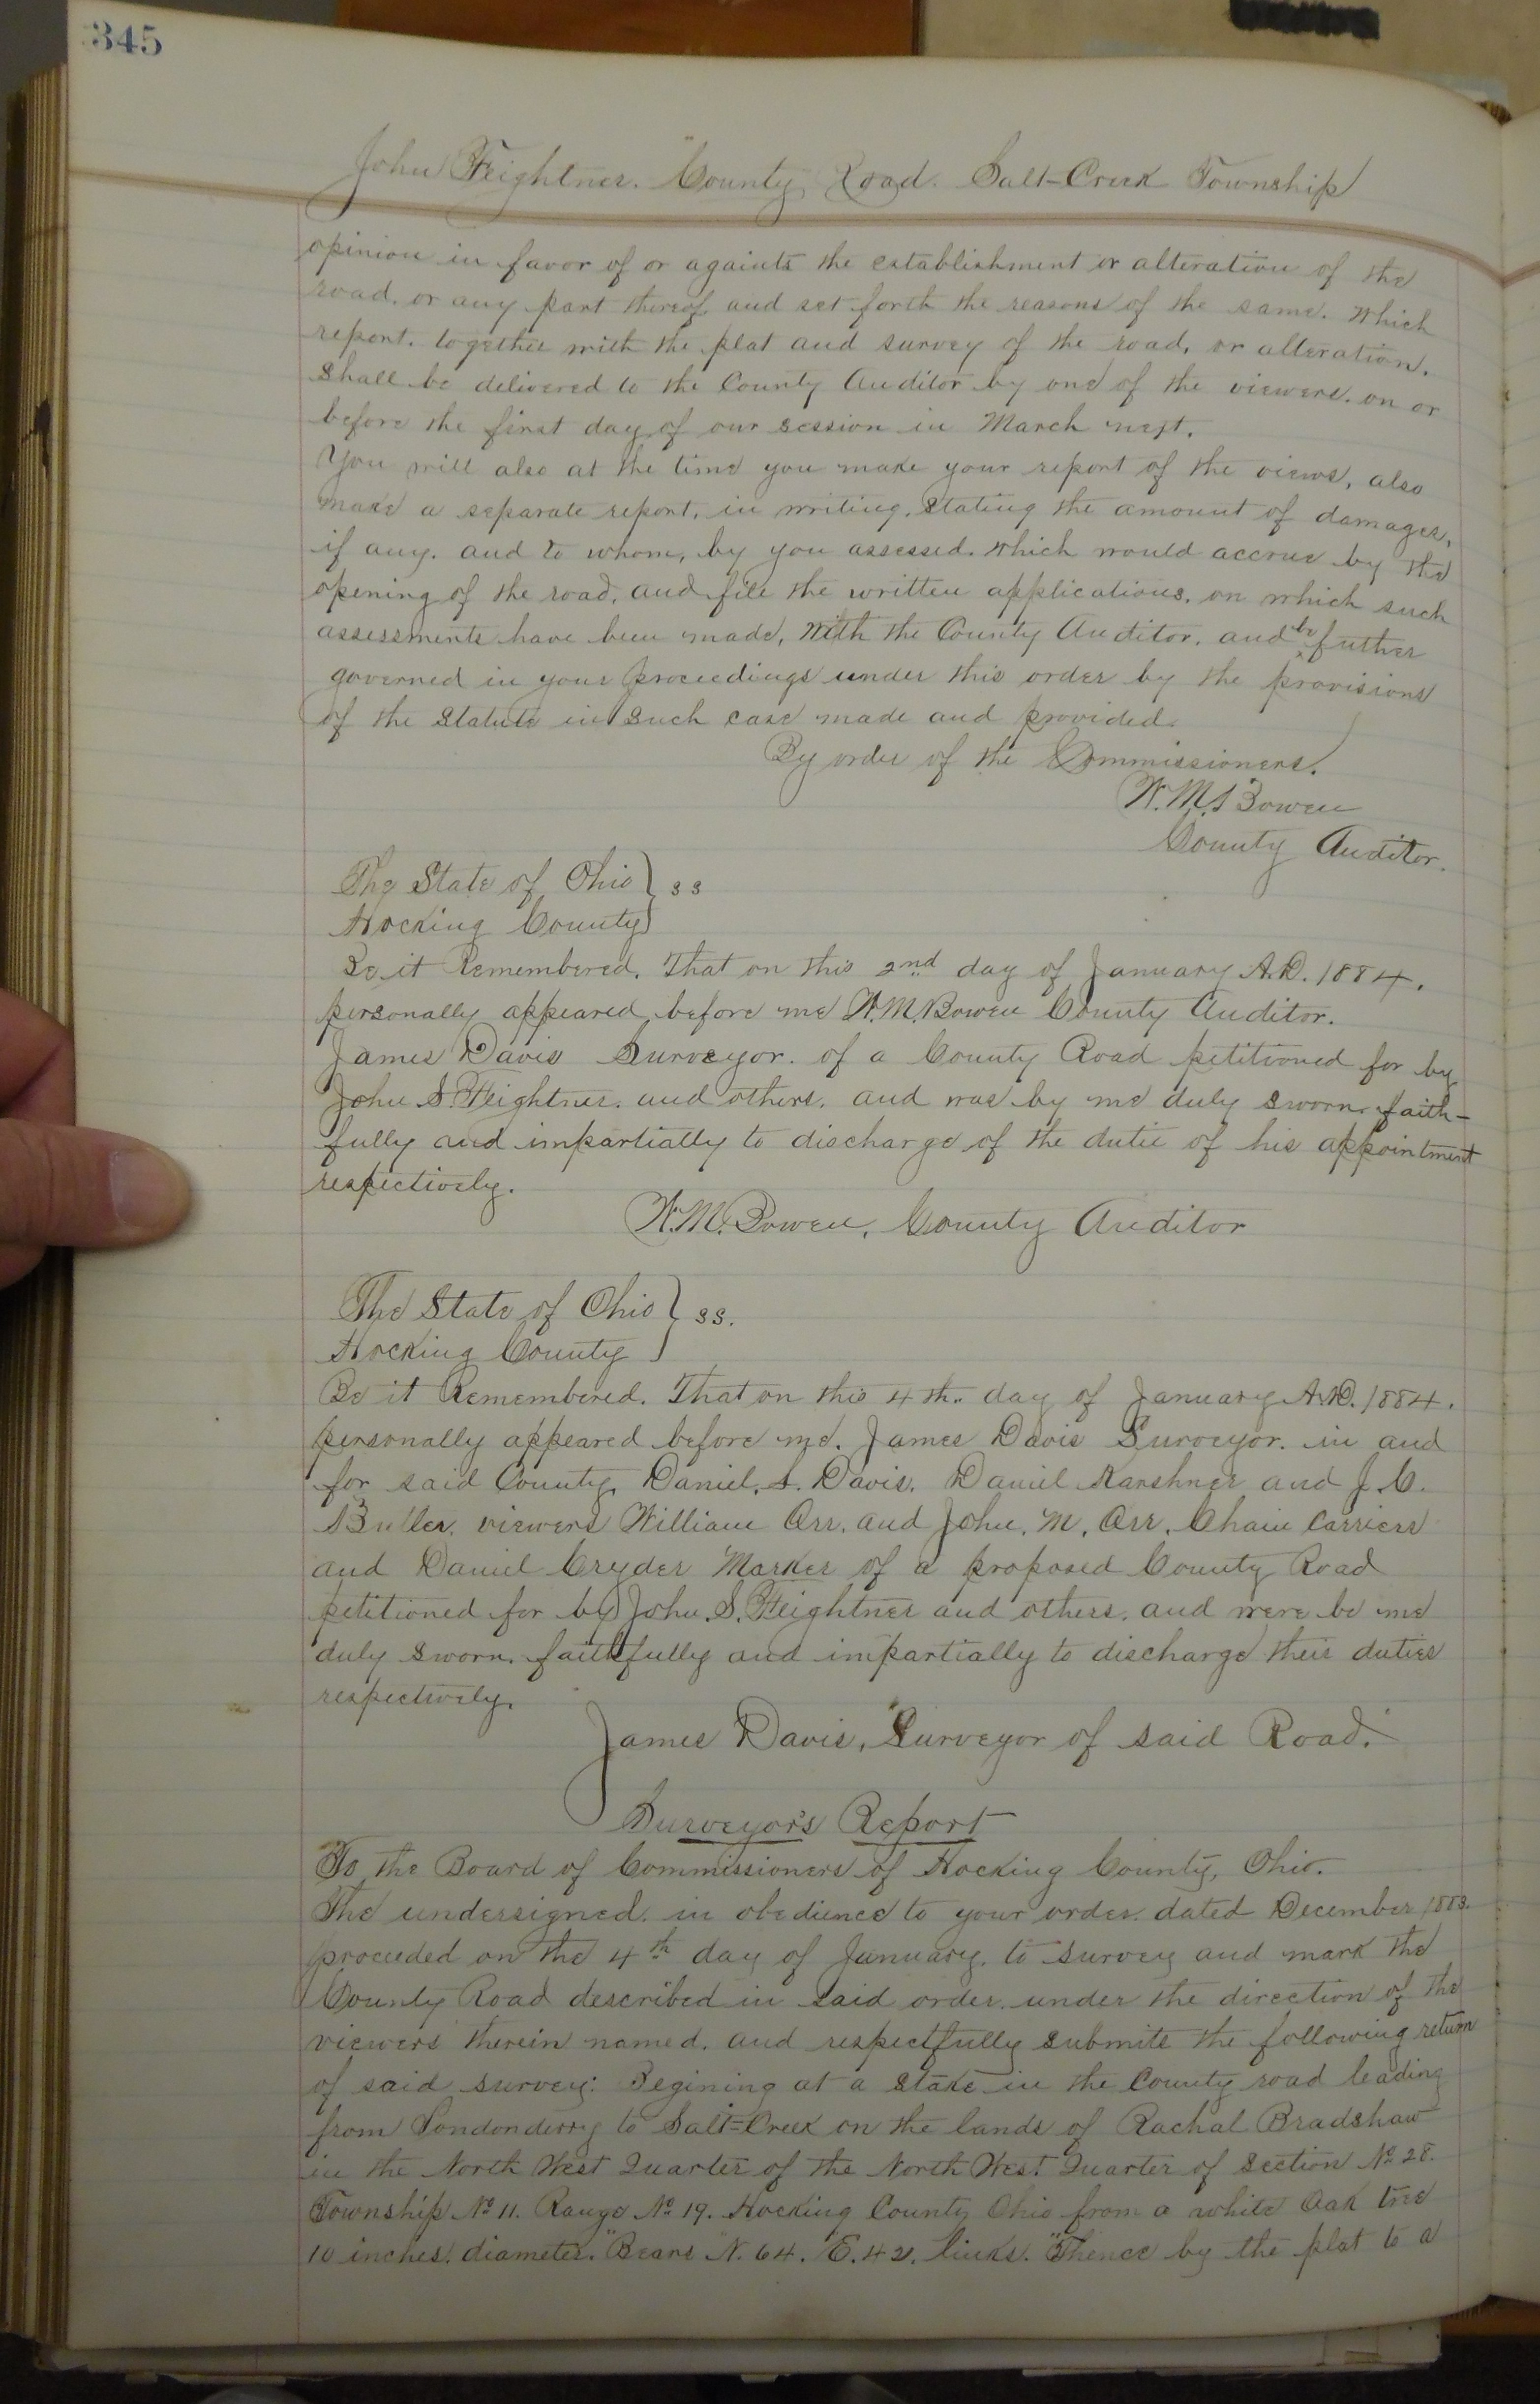 345
John Feightner. County Road. Salt-Creek Township
opinion in favor of or againts the establishment or alteration of the
road, or any part thereof and set forth the reasons of the same. Which
report, together with the plat and survey of the road, or alteration.
Shall be delivered to the County Auditor by one of the viewers. on or
before the first day of our session in March next.
You will also at the time you make your report of the views, also
make a separate report, in writing, stating the amount of damages,
if any. and to whom, by you assessed. which would accrue by the
opening of the road, and file the written applications, on which such
assessments have been made, With the County Auditor. and be futher
governed in your proceedings under this order by the provisions
of the Statute in such case made and provided.
By order of the Commissioners.
W.M. Bowen
County Auditor.
The State of Ohio } ss
Hocking County
Be it Remembered, That on this 2nd day of January A.D. 1884.
personally appeared before me W.M. Bowen County Auditor.
James Davis Surveyor. of a County Road petitioned for by
John S. Feightner. and others. and was by me duly sworn faith-
fully and impartially to discharge of the dutie of his appointment
respectively.
W.M. Bowen, County Auditor
The State of Ohio } ss.
Hocking County
Be it Remembered. That on this 4th. day of January A.D. 1884.
personally appeared before me. James Davis Surveyor. in and
for said County, Daniel. S. Davis. Daniel Karshner and J. C.
Butler. viewers William Orr. and John. M. Orr. Chain Carriers
and Daniel Cryder Marker of a proposed County Road
petitioned for by John. S. Feightner and others. and were be me
duly sworn. faithfully and impartially to discharge their duties
respectively.
James Davis, Surveyor of said Road.
Surveyor's Report
To the Board of Commissioners of Hocking County, Ohio.
The undersigned. in obedience to your order. dated December 1883.
proceeded on the 4th day of January. to survey and mark the
County Road described in said order. under the direction of the
viewers therein named. and respectfully submits the following return
of said survey: Begining at a Stake in the County road leading
from Londonderry to Salt-Creek on the lands of Rachal Bradshaw
in the North West Quarter of the North West Quarter of Section No 28.
Township No 11. Range No 19. Hocking County Ohio from a white Oak tree
10 inches. diameter. "Bears N. 64. E. 42. links." Thence by the plat to a